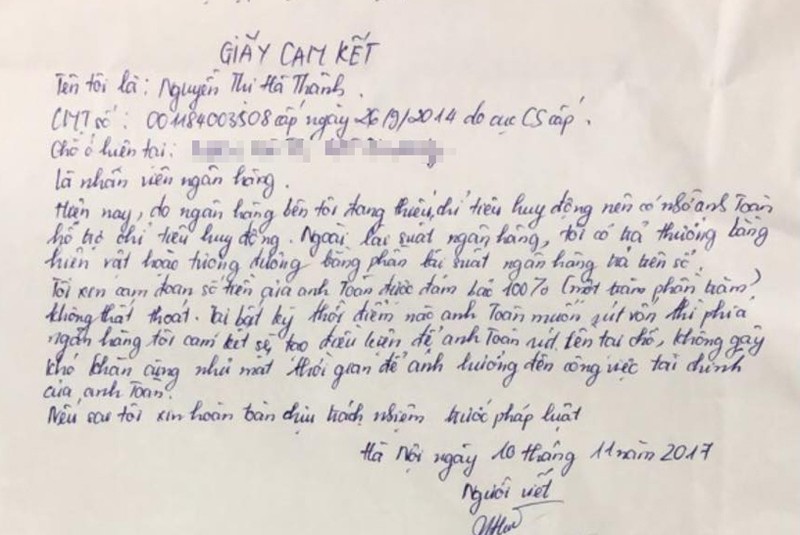 GIẤY CAM KẾT
Tên tôi là: Nguyễn Thị Hà Thành.
CMT số: 001184003508 cấp ngày 26/9/2014 do cục CS cấp.
Chỗ ở hiện tại:
Là nhân viên ngân hàng.
Hiện nay, do ngân hàng bên tôi đang thiếu chỉ tiêu huy động nên có nhờ anh Toàn
hỗ trợ chỉ tiêu huy động. Ngoài lãi suất ngân hàng, tôi có trả thưởng bằng
hiện vật hoặc tương đương bằng phần lãi suất ngân hàng trả trên sổ.
Tôi xin cam đoan số tiền của anh Toàn được đảm bảo 100% (một trăm phần trăm)
không thất thoát. Tại bất kỳ thời điểm nào anh Toàn muốn rút vốn thì phía
ngân hàng tôi cam kết sẽ tạo điều kiện để anh Toàn rút tiền tại chỗ, không gây
khó khăn cũng như mất thời gian để ảnh hưởng đến công việc tài chính
của anh Toàn.
Nếu sai tôi xin hoàn toàn chịu trách nhiệm trước pháp luật
Hà Nội ngày 10 tháng 11 năm 2017
Người viết